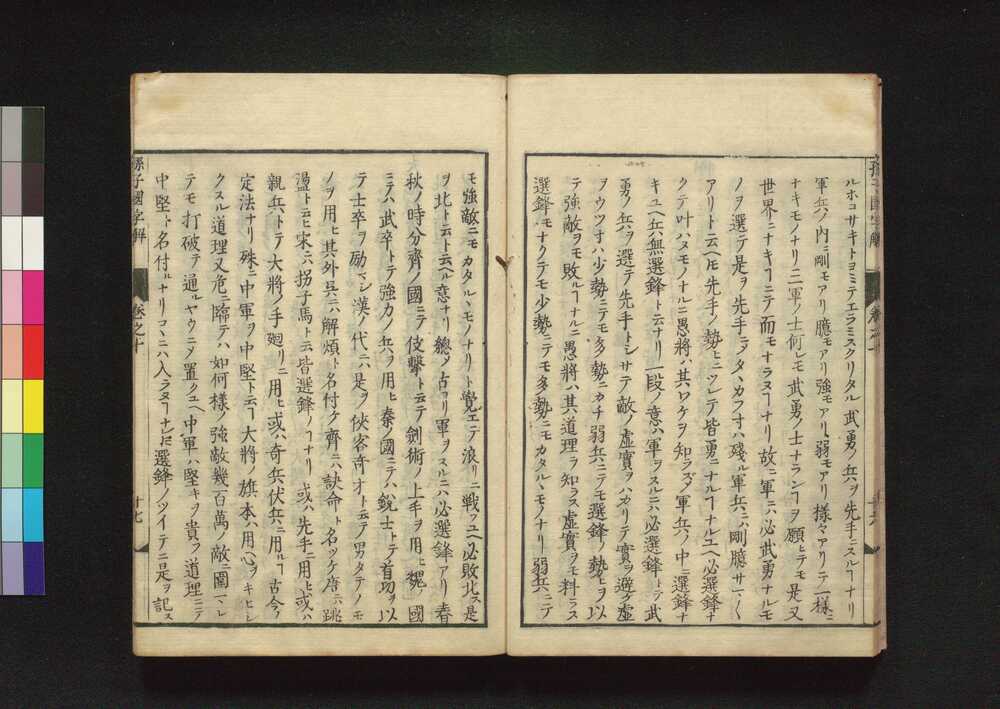 ルホコサキトヨミテエラミスクリタル武勇ノ兵ヲ先手ニスルヿナリ
軍兵ノ内ニ剛モアリ臆モアリ強モアリ弱モアリ様々アリテ一様ニ
ナキモノナリ三軍ノ士何レモ武勇ノ士ナランヿヲ願ヒテモ是又
世界ニナキヿニテ而モナラヌヿナリ故ニ軍ニハ必武勇ナルモ
ノヲ選テ是ヲ先手ニシタヽカフオハ殘ル軍兵ニハ剛臆サマ〱
アリト云ヘ𪜈先手ノ勢ヒニツレテ皆勇ニナルヿナルユヘ必選鋒ナ
クテ叶ハヌモノナルニ愚將ハ其ワケヲ知ラズノ軍兵ノ中ニ選鋒ナ
キユヘ兵ハ無選鋒ト云ナリ一段ノ意ハ軍ヲスルニハ必選鋒トテ武
勇ノ兵ヲ選テ先手トシサテ敵ノ虛實ヲハカリテ實ヲ避ケ虛
ヲウツオハ少勢ニテモ多勢ニカチ弱兵ニテモ選鋒ノ勢ヒヲ以
テ強敵ヲモ敗ルヿナルニ愚將ハ其道理ヲ知ラス虛實ヲモ料ラス
選鋒モナクノテモ少勢ニテモ多勢ニモカタルヽモノナリ弱兵ニテ
モ強敵ニモカタルヽモノナリト覺エテ浪リニ戰フユヘ必敗北ス是
ヲ北ト云ト云ヘル意ナリ總ノ古ヨリ軍ヲスルニハ必選鋒アリ春
秋ノ時ハ分齊ノ國ニテ伎擊ト云テ劍術ノ上手ヲ用ヒ魏ノ國
ニテハ武卒トテ強力ノ兵ヲ用ヒ秦ノ國ニテハ銳士トテ首切ヲ以
テ士卒ヲ勵マシ漢ノ代ニハ是ヲ俠客奇才ト云テ男タテノモ
ノヲ用ヒ其外吳ニハ解煩ト名付ケ齊ニハ訣命ト名ツケ唐ニハ跳
盪ト云ヒ宋ニハ拐子馬ト云皆選鋒ノヿナリ或ハ先手ニ用ヒ或ハ
親兵トテ大將ノ手廻リニ用ヒ或ハ奇兵伏兵ニ用ルヿ古今ノ
定法ナリ殊ニ中軍ヲ中堅ト云ヿ大將ノ旗本ハ用心ヲキヒシ
クスル道理又危ニ臨テハ如何樣ノ強敵幾百萬ノ敵ニ圍マレ
テモ打破テ通ルヤウニノ置クユヘ中軍ハ堅キヲ貴フ道理ニテ
中堅ト名付ルナリコヽニハ入ラヌヿナレ𪜈選鋒ノツイテニ是ヲ記ス
孫子國字解
卷之十
十七